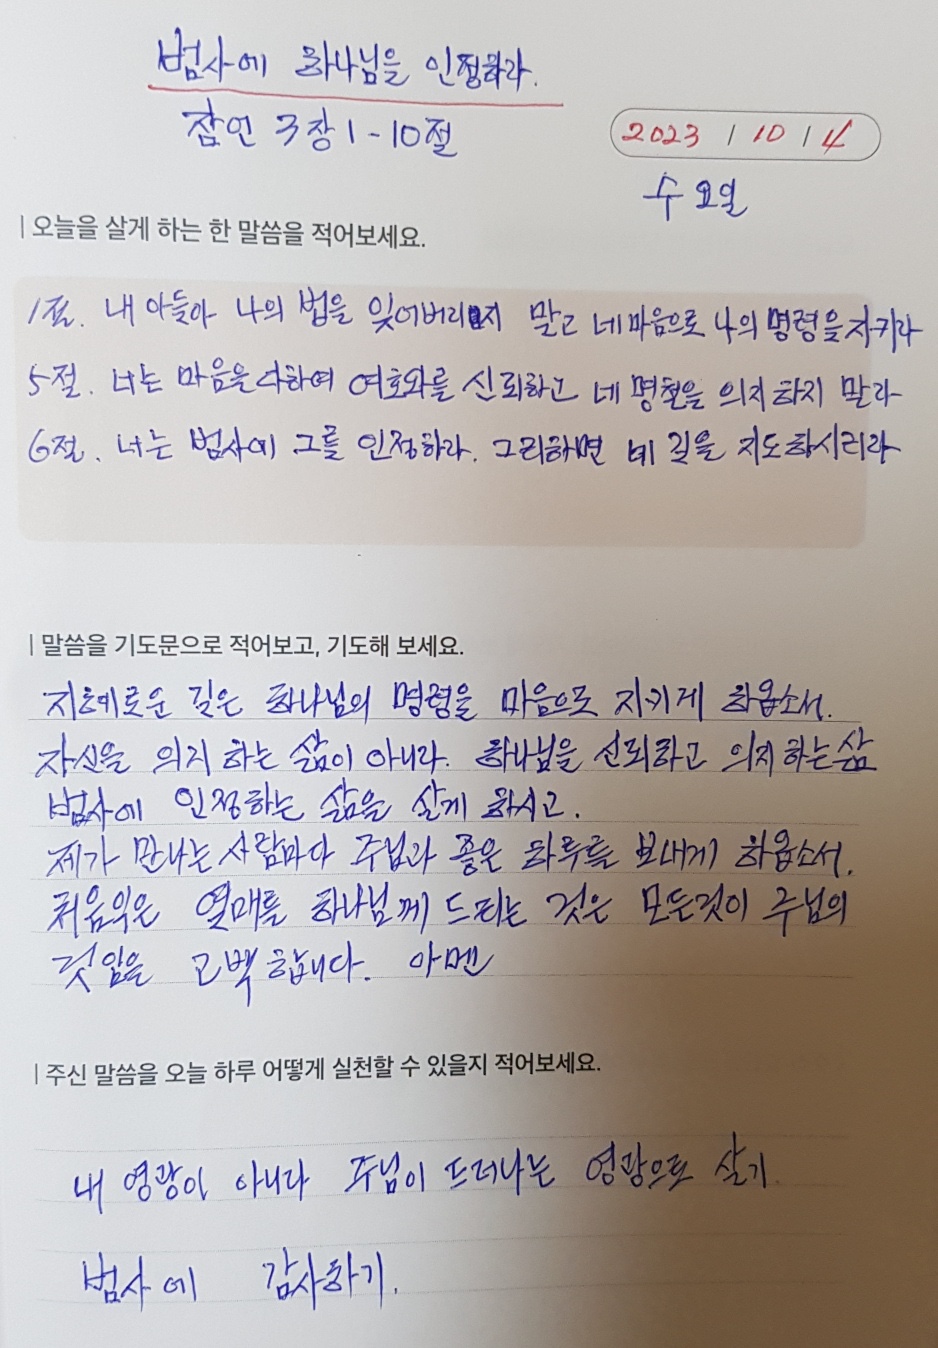 범사에 하나님을 인정하라.
잠언 3장 1-10절
2023 / 10 / 4
수요일
| 오늘을 살게 하는 한 말씀을 적어보세요.
1절. 내 아들아 나의 법을 잊어버리지 말고 네 마음으로 나의 명령을 지키라
5절. 너는 마음을 다하여 여호와를 신뢰하고 네 명철을 의지하지 말라
6절. 너는 범사에 그를 인정하라. 그리하면 네 길을 지도하시리라
| 말씀을 기도문으로 적어보고, 기도해 보세요.
지혜로운 길은 하나님의 명령을 마음으로 지키게 하옵소서.
자신을 의지하는 삶이 아니라. 하나님을 신뢰하고 의지하는 삶
범사에 인정하는 삶을 살게 하시고.
제가 만나는 사람마다 주님과 좋은 하루를 보내게 하옵소서.
처음익은 열매를 하나님께 드리는 것은 모든것이 주님의
것임을 고백합니다. 아멘
| 주신 말씀을 오늘 하루 어떻게 실천할 수 있을지 적어보세요.
내 영광이 아니라 주님이 드러나는 영광으로 살기.
범사에 감사하기.